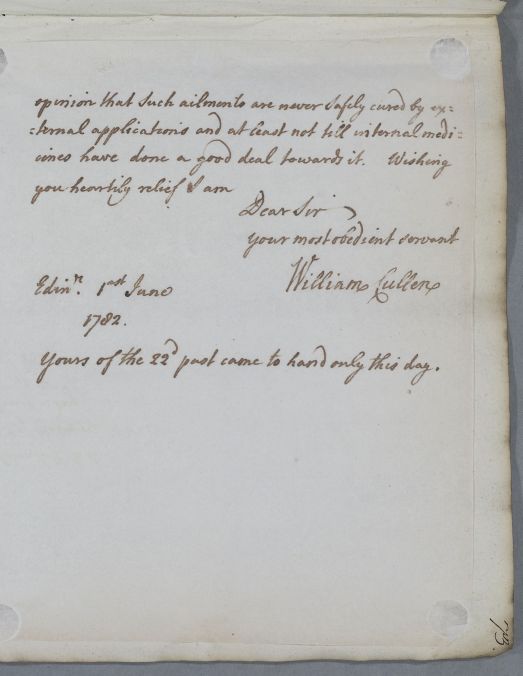 opinion that Such ailments are never Safely cured by ex=
=ternal applications and at least not till internal medi=
cines have done a good deal towards it. Wishing
you heartily relief I am
Dear Sir
your most obedient servant
William Cullen
Edinr. 1st June
1782.
Yours of the 22d past came to hand only this day.